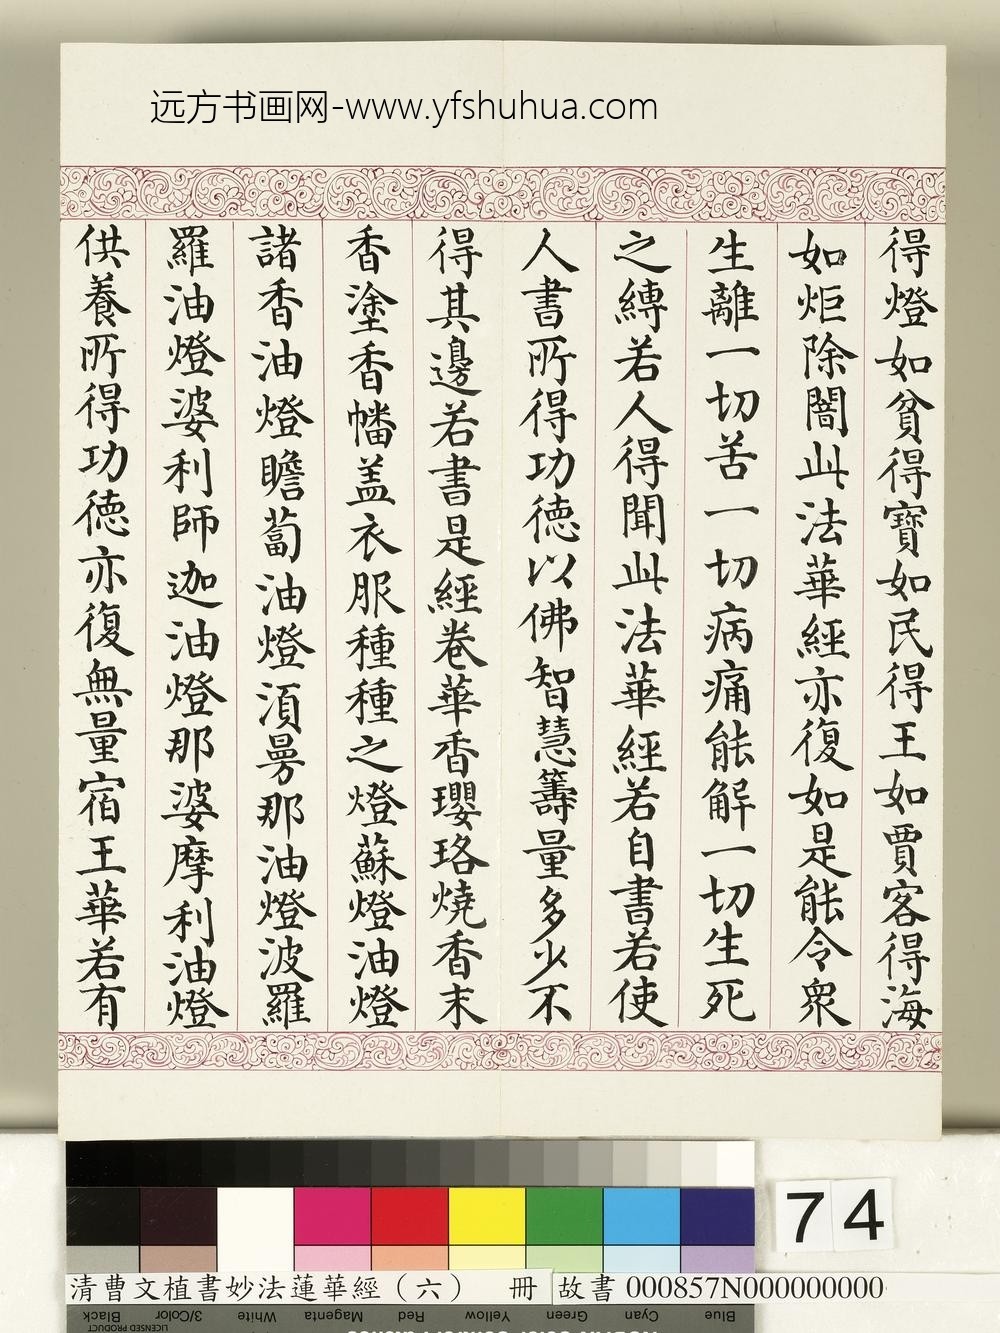 远方书画网-www.yfshuhua.com
得燈如貧得寶如民得王如賈客得海
如炬除闇此法華經亦復如是能令衆
生離一切苦一切病痛能解一切生死
之縛若人得聞此法華經若自書若使
人書所得功德以佛智慧籌量多少不
得其邊若書是經卷華香瓔珞燒香末
香塗香幡盖衣服種種之燈蘇燈油燈
諸香油燈瞻蔔油燈湏曼那油燈波羅
羅油燈婆利師迦油燈那婆摩利油燈
供養所得功德亦復無量宿王華若有
74
清曹文植書妙法蓮華經（六） 冊 故書 000857N000000000
Black 3/Color White Magenta Red Yellow Green Cyan Blue
LICENSED PRODUCT